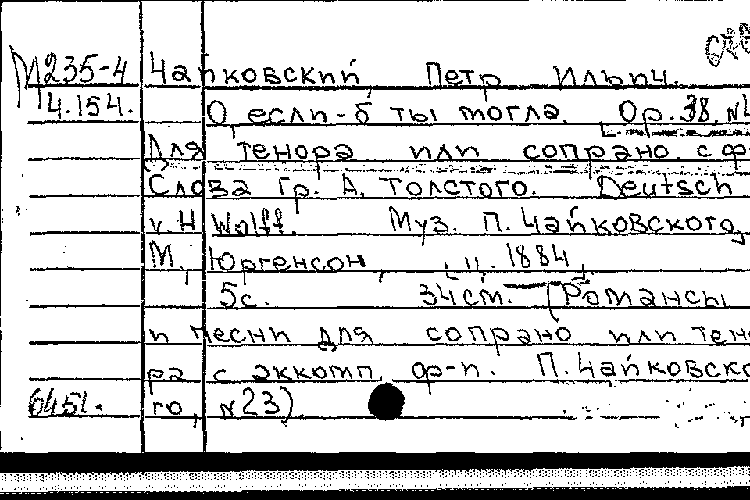 М235-4 Чайковский, Петр Ильич.
14.154. О если-б ты могла. Ор. 38, N4
Для тенора или сопрано с ф-
Слова гр. А. Толстого. Deutsch
v. H Wolff. Муз. П. Чайковского,
М., Юргенсон, ц. 1884
5с. 34см. (Романсы
и песни для сопрано или тено
ра с аккомп. ф-п. П. Чайковско
6451. го, N23)